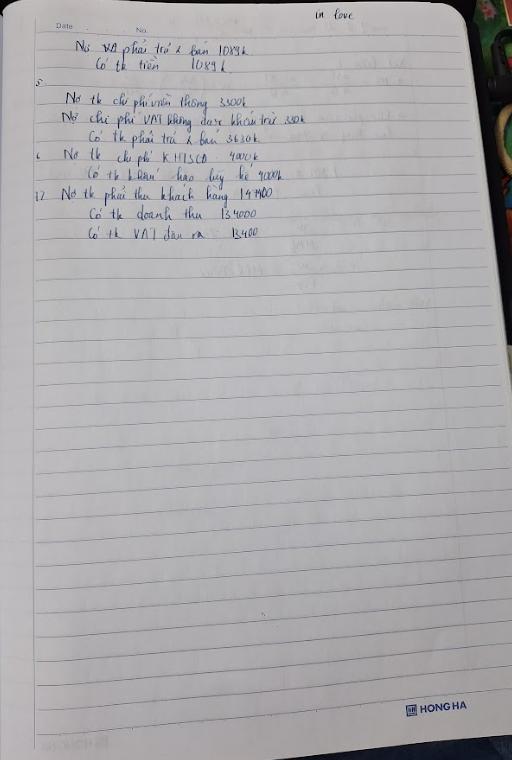 in love
Date No.
Nợ VA phải trả & bán 1089k
Có tk tiền 1089k
5
Nợ tk chi phí viễn thông 3300k
Nợ chi phí VAT không được khấu trừ 330k
Có tk phải trả & bán 3630k
6 Nợ tk chi phí KHTSCĐ 4000k
Có tk khấu hao lũy kế 4000k
12 Nợ tk phải thu khách hàng 147400
Có tk doanh thu 134000
Có tk VAT đầu ra 13400
HONG HA